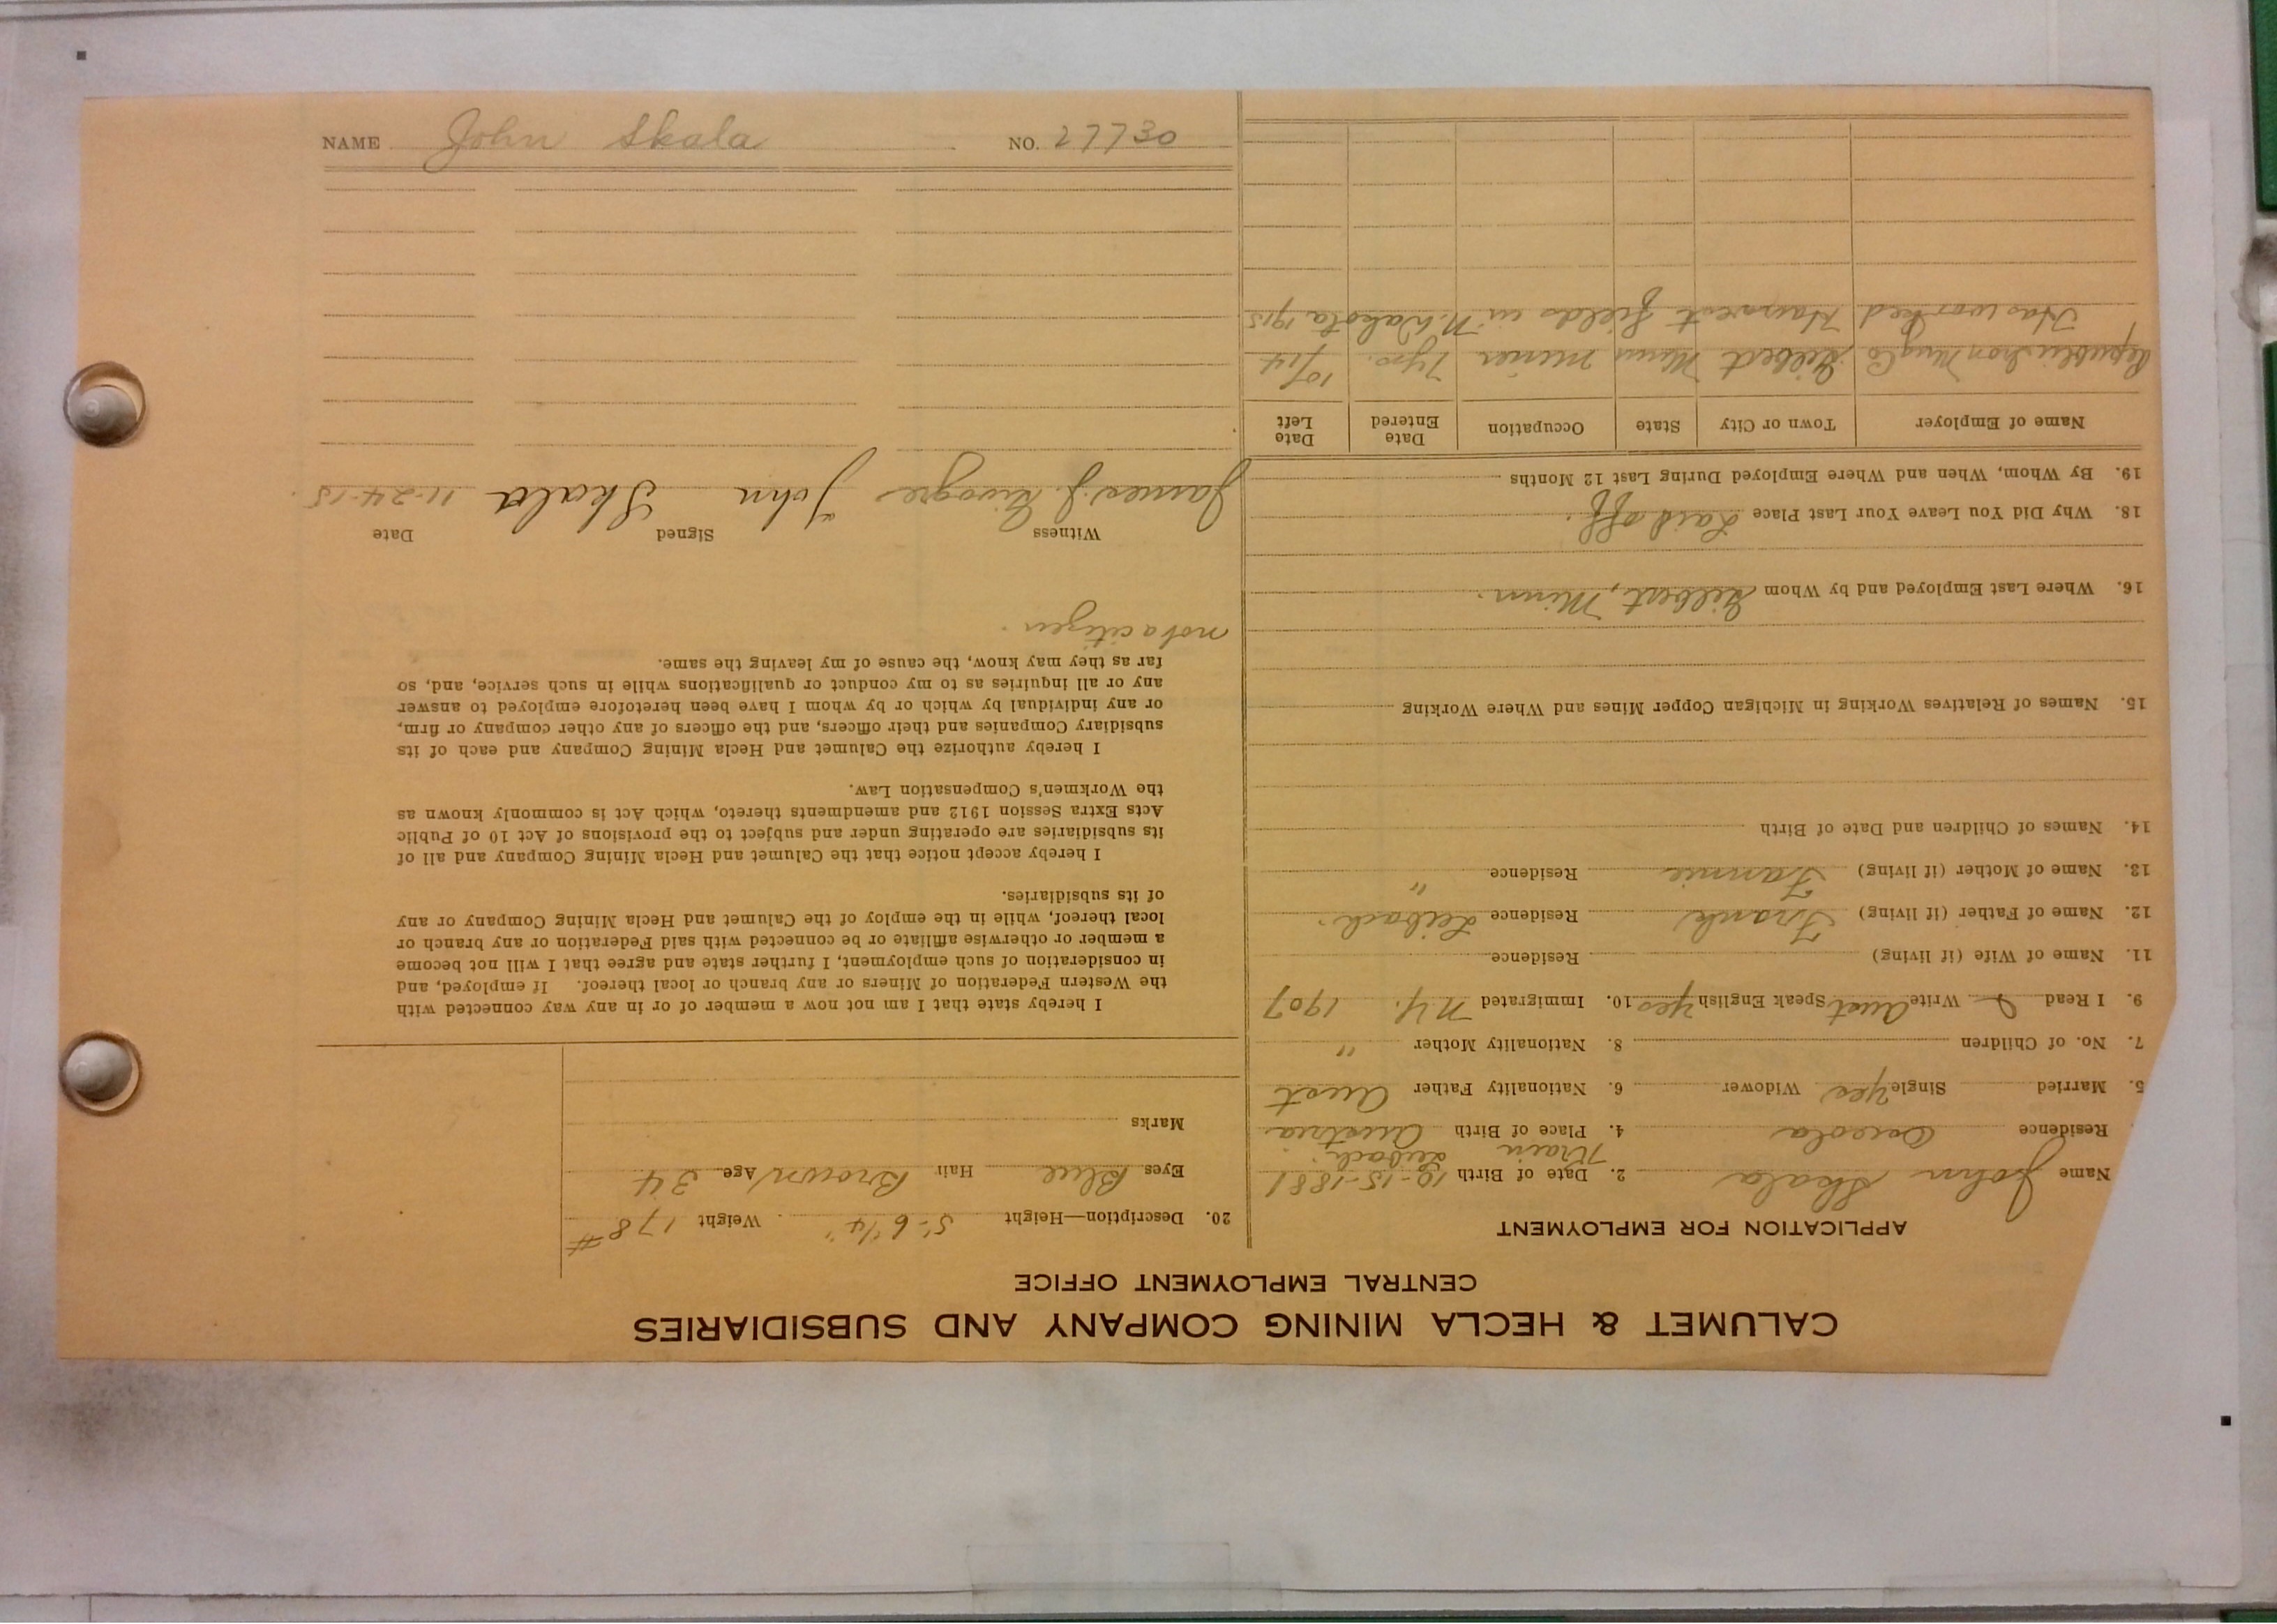 CALUMET & HECLA MINING COMPANY AND SUBSIDIARIES
CENTRAL EMPLOYMENT OFFICE
APPLICATION FOR EMPLOYMENT
Name John Skala 2. Date of Birth 10-15-1881
Krain Leibach
Residence Osceola 4. Place of Birth Austria
5. Married Single Yes Widower 6. Nationality Father Aust
7. No. of Children 8. Nationality Mother "
9. I Read & Write Aust Speak English Yes 10. Immigrated N.Y. 1907
11. Name of Wife (if living) Residence
12. Name of Father (if living) Frank Residence Leibach
13. Name of Mother (if living) Fannie Residence "
14. Names of Children and Date of Birth
15. Names of Relatives Working in Michigan Copper Mines and Where Working
16. Where Last Employed and by Whom Gilbert, Minn.
18. Why Did You Leave Your Last Place Laid off.
19. By Whom, When and Where Employed During Last 12 Months
Name of Employer Town or City State Occupation Date Entered Date Left
Republic Iron Mng Co Gilbert Minn miner 7 yrs. 10/14
Has worked Harvest fields in N. Dakota 1915
20. Description—Height 5'-6 1/4" Weight 178#
Eyes Blue Hair Brown Age 34
Marks
I hereby state that I am not now a member of or in any way connected with
the Western Federation of Miners or any branch or local thereof. If employed, and
in consideration of such employment, I further state and agree that I will not become
a member or otherwise affiliate or be connected with said Federation or any branch or
local thereof, while in the employ of the Calumet and Hecla Mining Company or any
of its subsidiaries.
I hereby accept notice that the Calumet and Hecla Mining Company and all of
its subsidiaries are operating under and subject to the provisions of Act 10 of Public
Acts Extra Session 1912 and amendments thereto, which Act is commonly known as
the Workmen's Compensation Law.
I hereby authorize the Calumet and Hecla Mining Company and each of its
subsidiary Companies and their officers, and the officers of any other company or firm,
or any individual by which or by whom I have been heretofore employed to answer
any or all inquiries as to my conduct or qualifications while in such service, and, so
far as they may know, the cause of my leaving the same.
not a citizen.
Witness Signed Date
James J. John Skala 11-24-15.
NAME John Skala NO. 27730